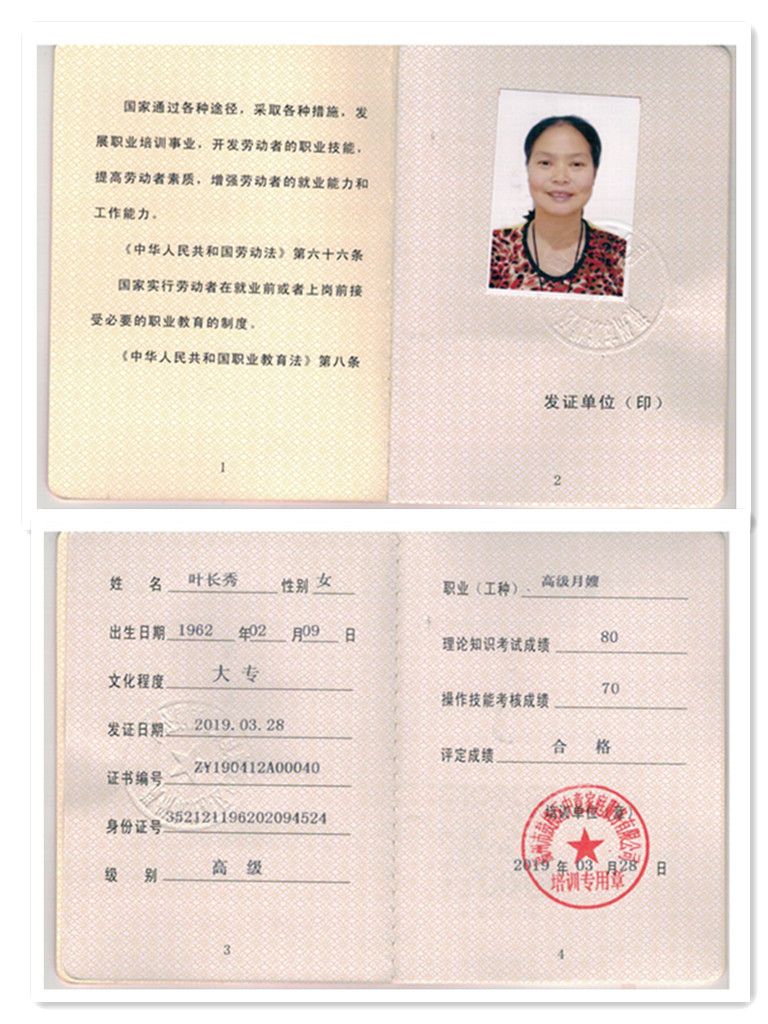 国家通过各种途径，采取各种措施，发
展职业培训事业，开发劳动者的职业技能，
提高劳动者素质，增强劳动者的就业能力和
工作能力。
《中华人民共和国劳动法》第六十六条
国家实行劳动者在就业前或者上岗前接
受必要的职业教育的制度。
《中华人民共和国职业教育法》第八条
1
发证单位（印）
2
姓 名 叶长秀 性别 女
出生日期 1962 年 02 月 09 日
文化程度 大 专
发证日期 2019.03.28
证书编号 ZY190412A00040
身份证号 352121196202094524
级 别 高 级
3
职业（工种）、高级月嫂
理论知识考试成绩 80
操作技能考核成绩 70
评定成绩 合 格
培训单位 章
2019 年 03 月 28 日
培训专用章
4